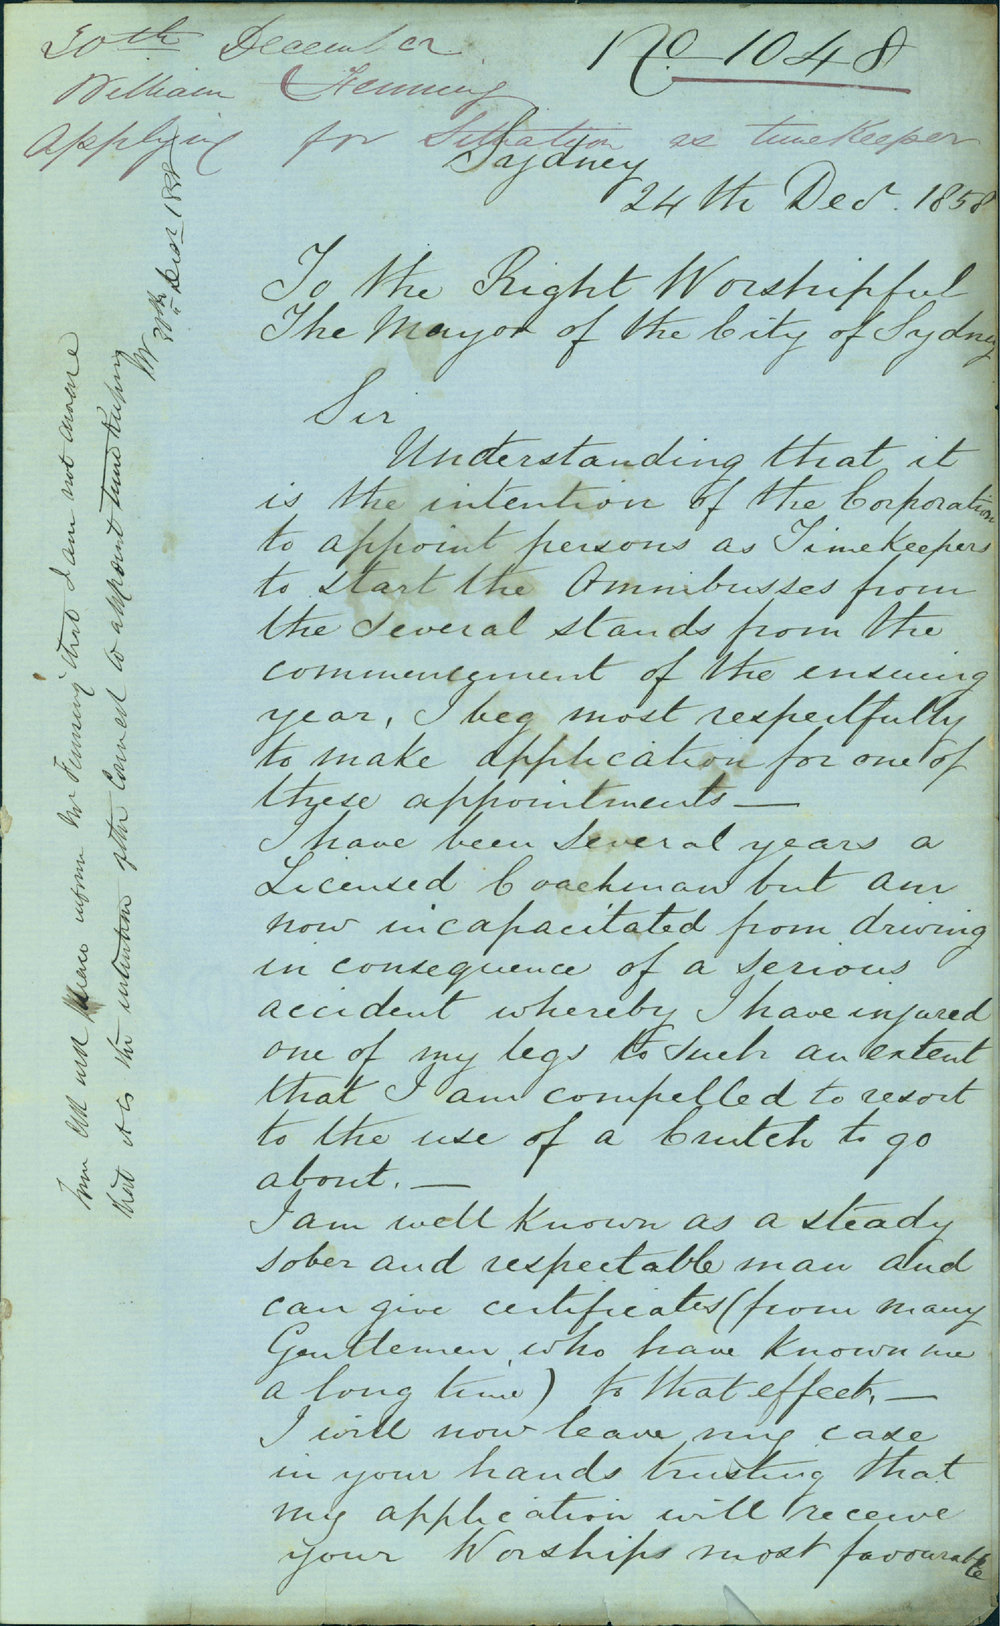 30th December
William Fenning
Applying for Situation as timekeeper
No. 1048
Sydney
24th Decr. 1858
To the Right Worshipful
The Mayor of the City of Sydney
Sir
Understanding that it
is the intention of the Corporation
to appoint persons as TimeKeepers
to start the Omnibusses from
the several stands from the
commencement of the ensuing
year, I beg most respectfully
to make application for one of
these appointments —
I have been several years a
Licensed Coachman but am
now incapacitated from driving
in consequence of a serious
accident whereby I have injured
one of my legs to such an extent
that I am compelled to resort
to the use of a Crutch to go
about. —
I am well Known as a steady
sober and respectable man and
can give certificates (from many
Gentlemen who have Known me
a long time) to that effect. —
I will now leave my case
in your hands trusting that
my application will receive
your Worships most favourable
Town Clk will please inform Mr Fenning that I am not aware
that it is the intention of the Council to appoint time Keeping
30th Decr 1858